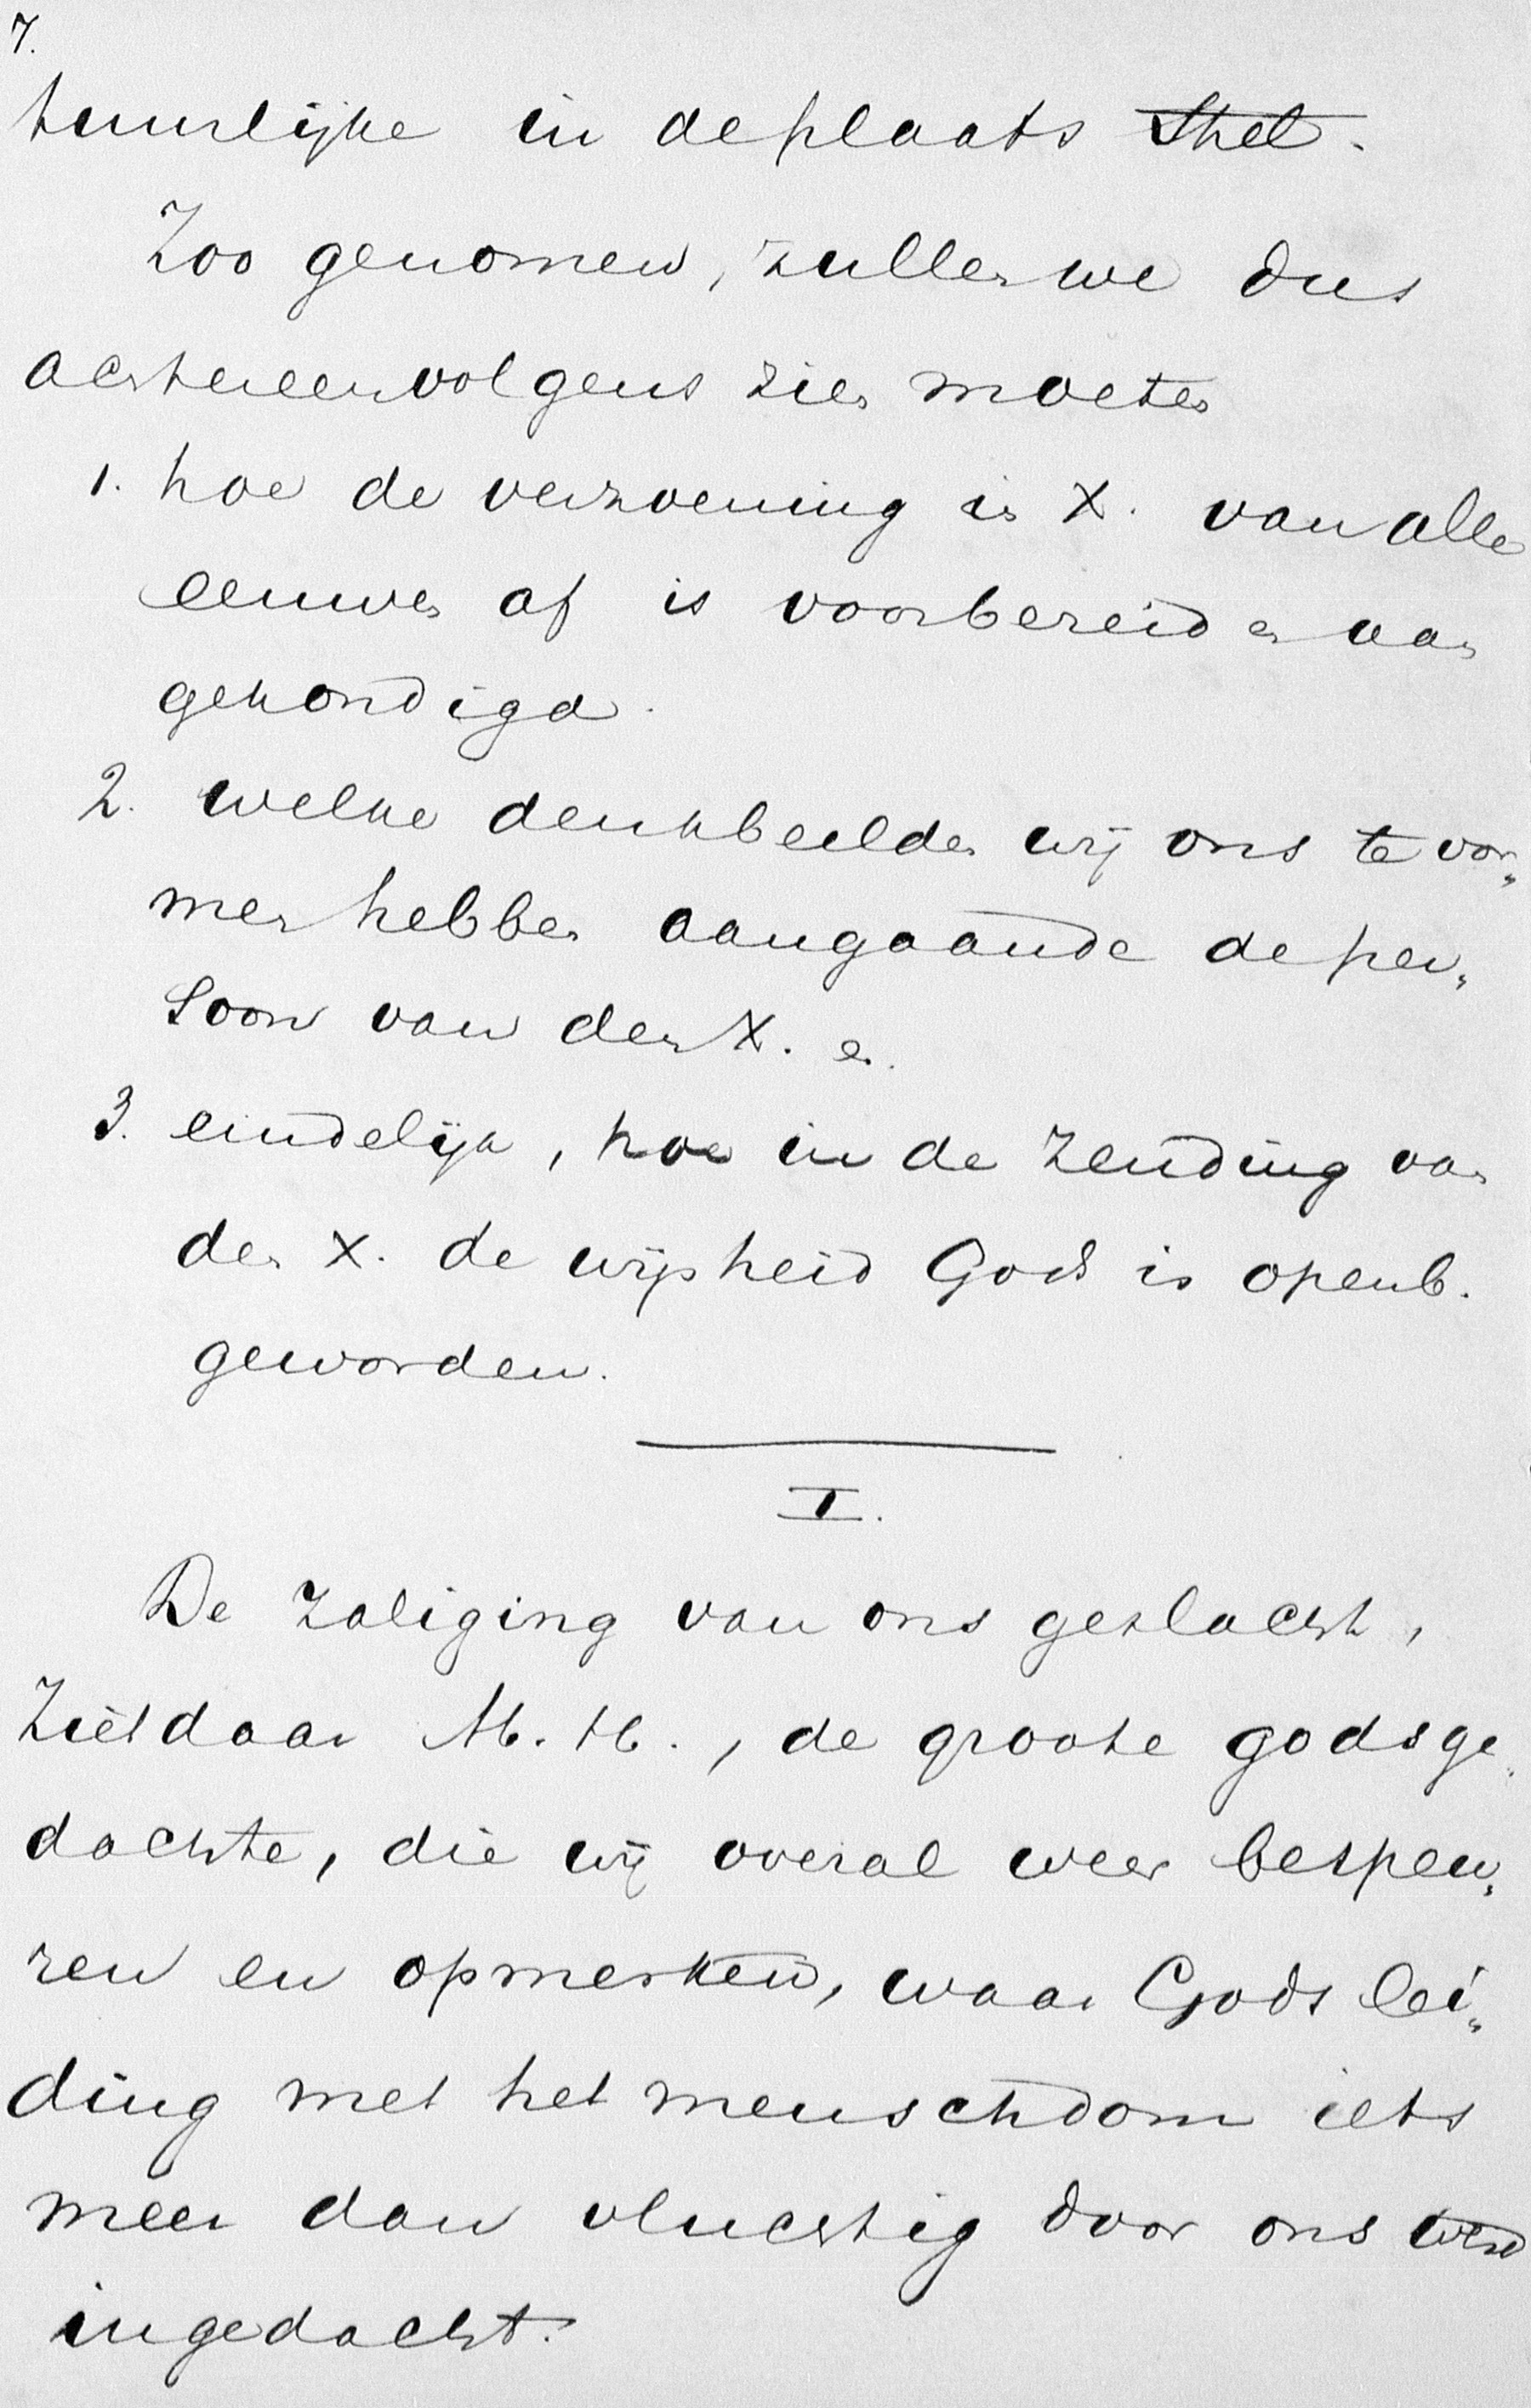 7.
tuurlijke in de plaats stelt.
Zoo genomen, zullen we dus
achtereenvolgens zien moeten
1. hoe de verzoening in X. van alle
eeuwen af is voorbereid en aan
gekondigd.
2. welke denkbeelden wij ons te vor„
men hebben aangaande de per„
soon van den X. en
3. eindelijk, hoe in de zending van
den X. de wijsheid Gods is openb.
geworden.
I.
De zaliging van ons geslacht,
Ziet daar M. H., de groote godsge„
dachte, die wij overal weer bespeu„
ren en opmerken, waar Gods lei„
ding met het menschdom iets
meer dan vluchtig door ons werd
ingedacht.